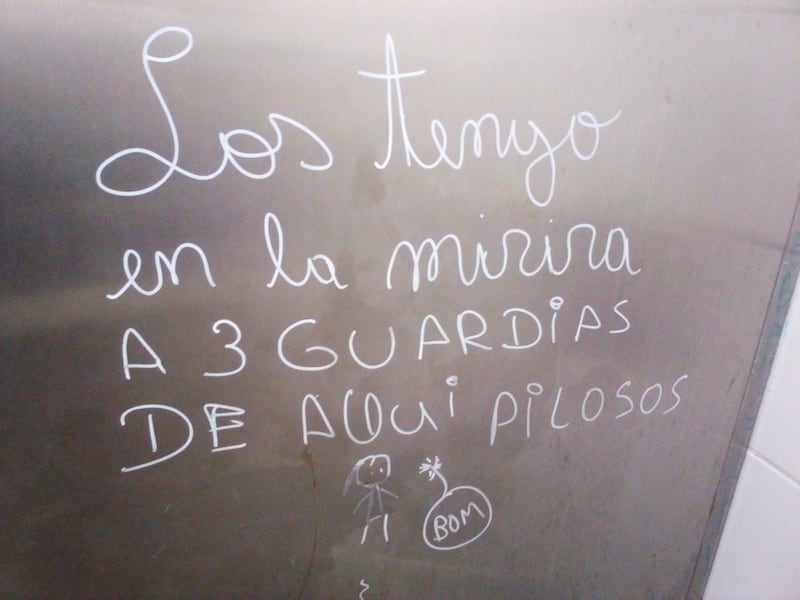 Los tengo
en la mirira
A 3 GUARDiAS
DE AQUi PiLOSOS
BOM